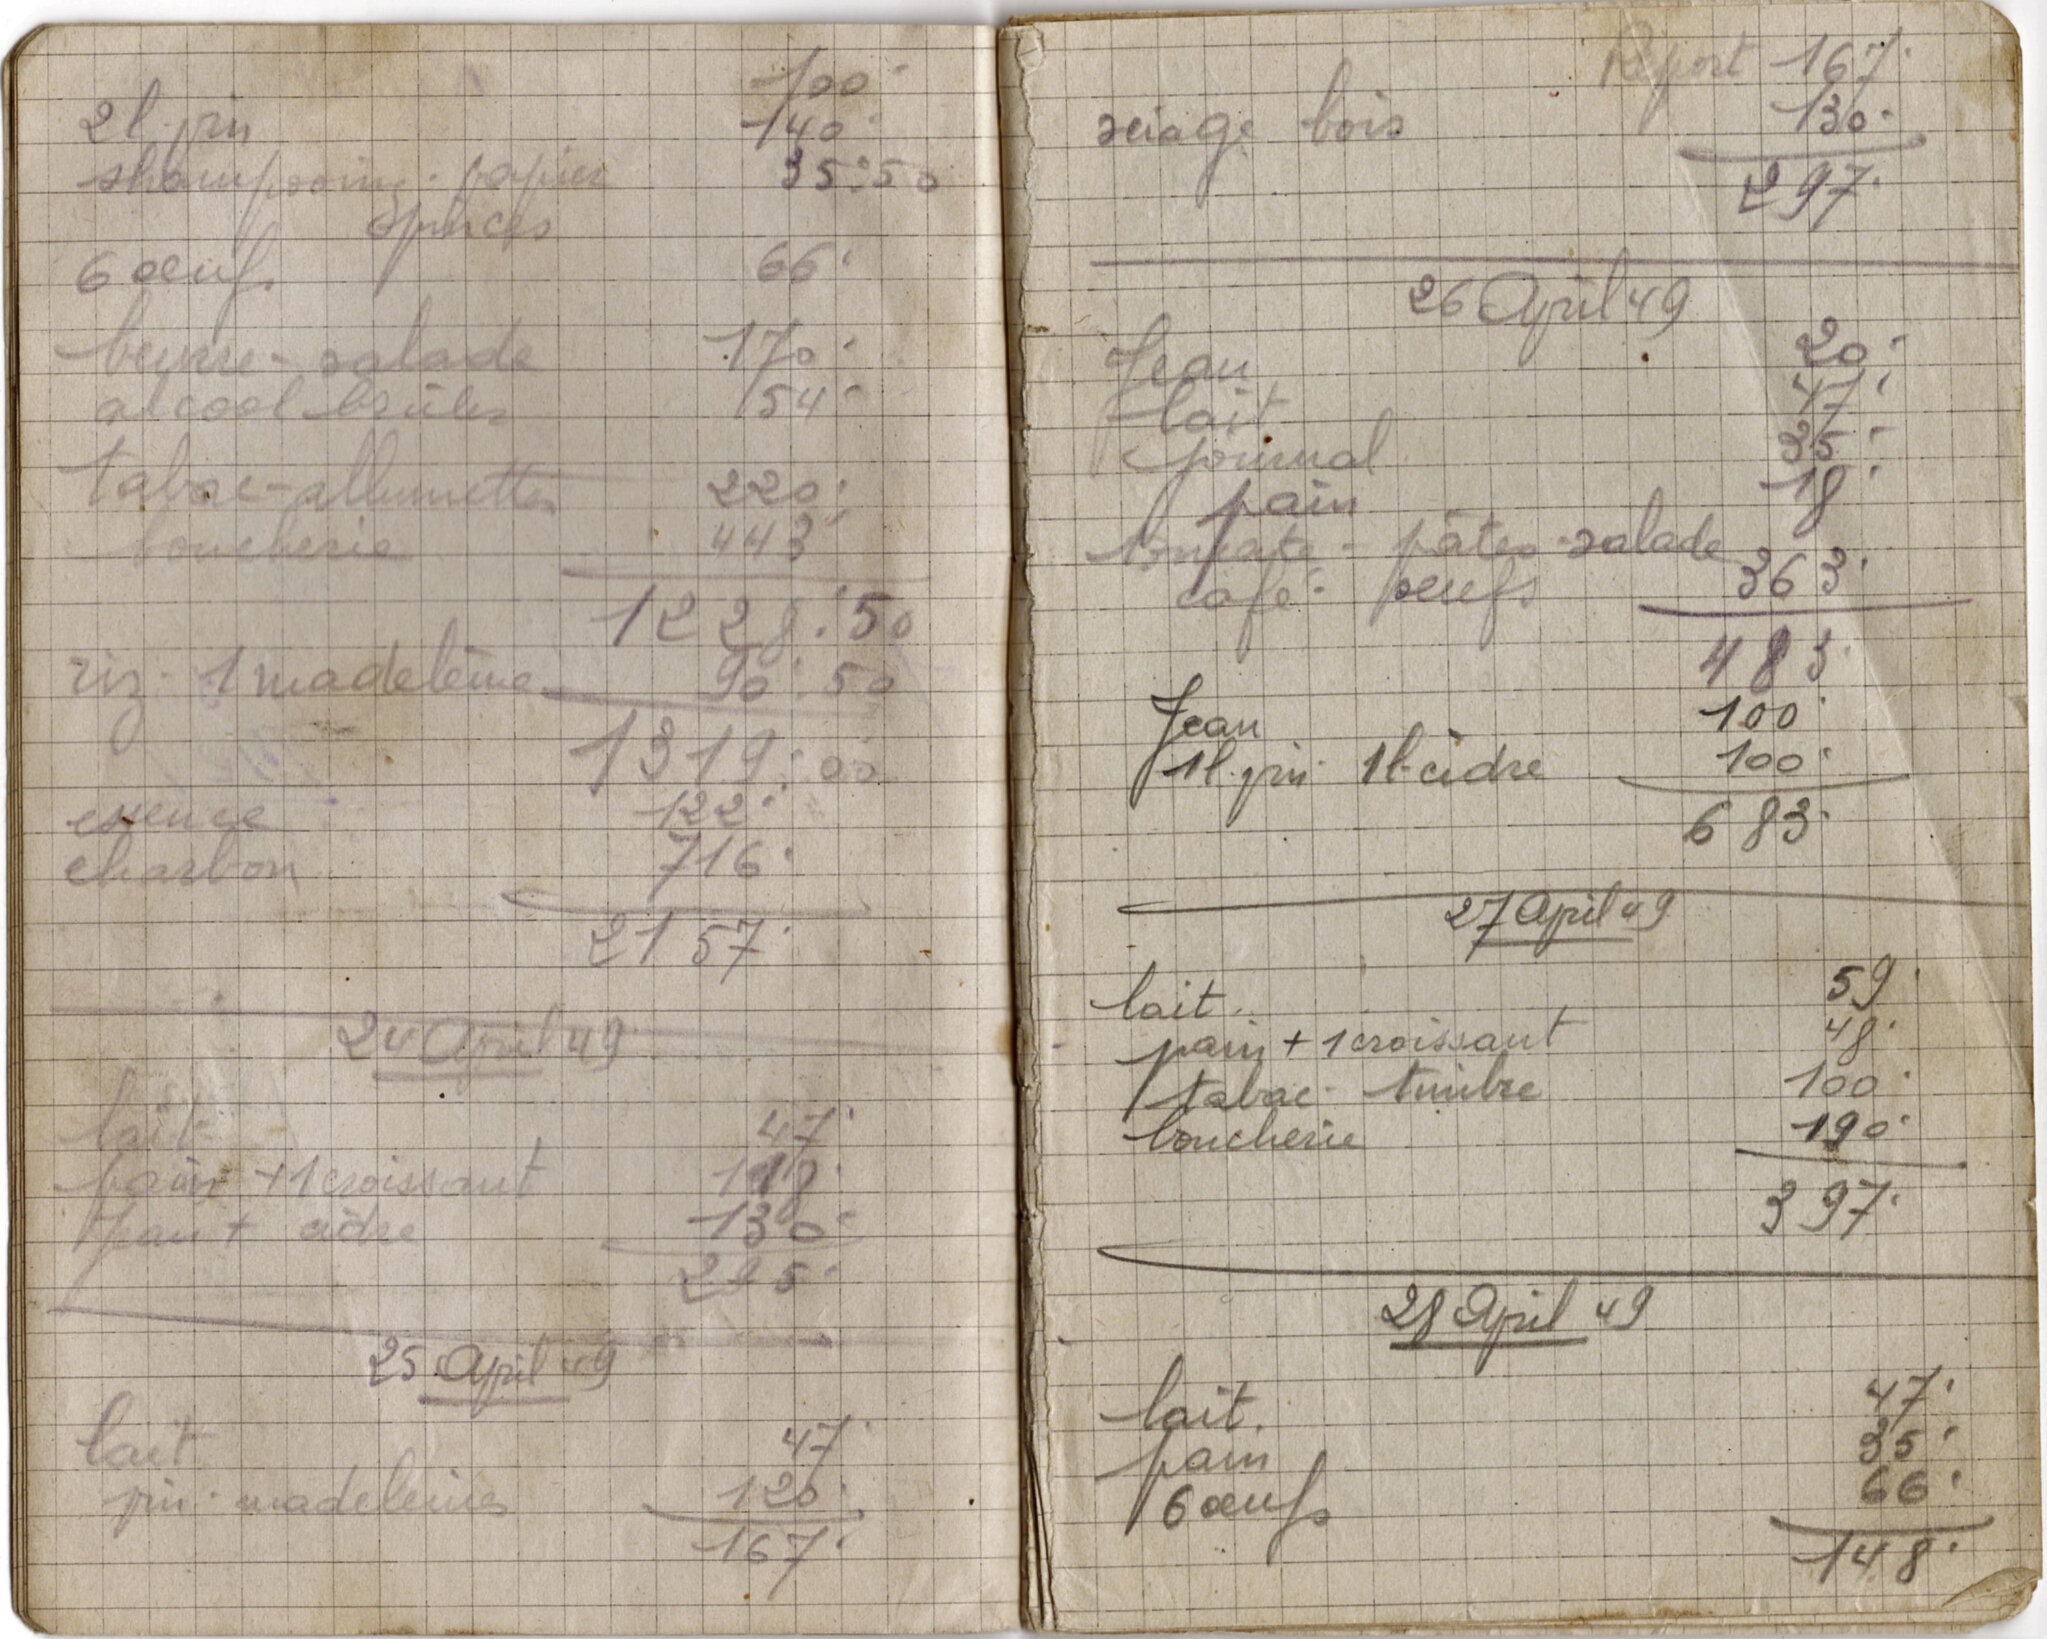 100.
2 l. vin 140.
shampooing - papier 35.50
épices
6 oeufs 66.
beurre - salade 170.
alcool brûler 54.
tabac - allumettes 220.
boucherie 443.
1228.50
riz - 1 madeleine 90.50
1319.00
essence 122.
charbon 716.
2157.
24 April 49
lait 47.
pain + 1 croissant 118.
Jean + cidre 130.
295.
25 April 49
lait 47.
vin - madeleines 120.
167.
Report 167.
sciage bois 130.
297.
26 April 49
Jean 20.
lait 47.
journal 35.
pain 18.
tomate - pâtes - salade
café - oeufs 363.
483.
Jean 100.
1 l. vin - 1 l. cidre 100.
683.
27 April 49
lait 59.
pain + 1 croissant 48.
tabac - timbre 100.
boucherie 190.
397.
28 April 49
lait 47.
pain 35.
6 oeufs 66.
148.